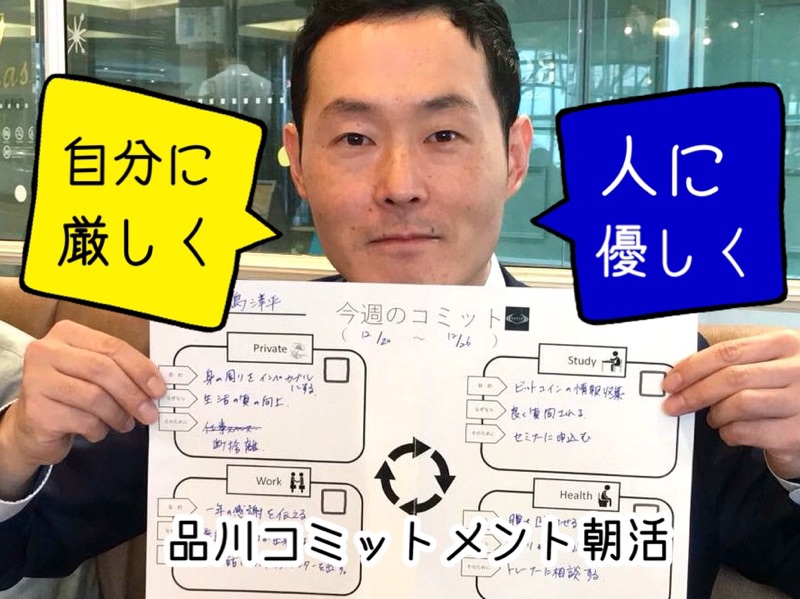 自分に
厳しく
人に
優しく
島 洋平
今週のコミット
( 12/20 ～ 12/26 )
Private
目的
身の周りをインペカブルにする
なぜなら
生活の質の向上
そのために
断捨離
Study
目的
ビットコインの情報収集
なぜなら
良く質問される
そのために
セミナーに申込む
Work
一年の感謝を伝える
Health
そのために
トレーナーに相談する
品川コミットメント朝活